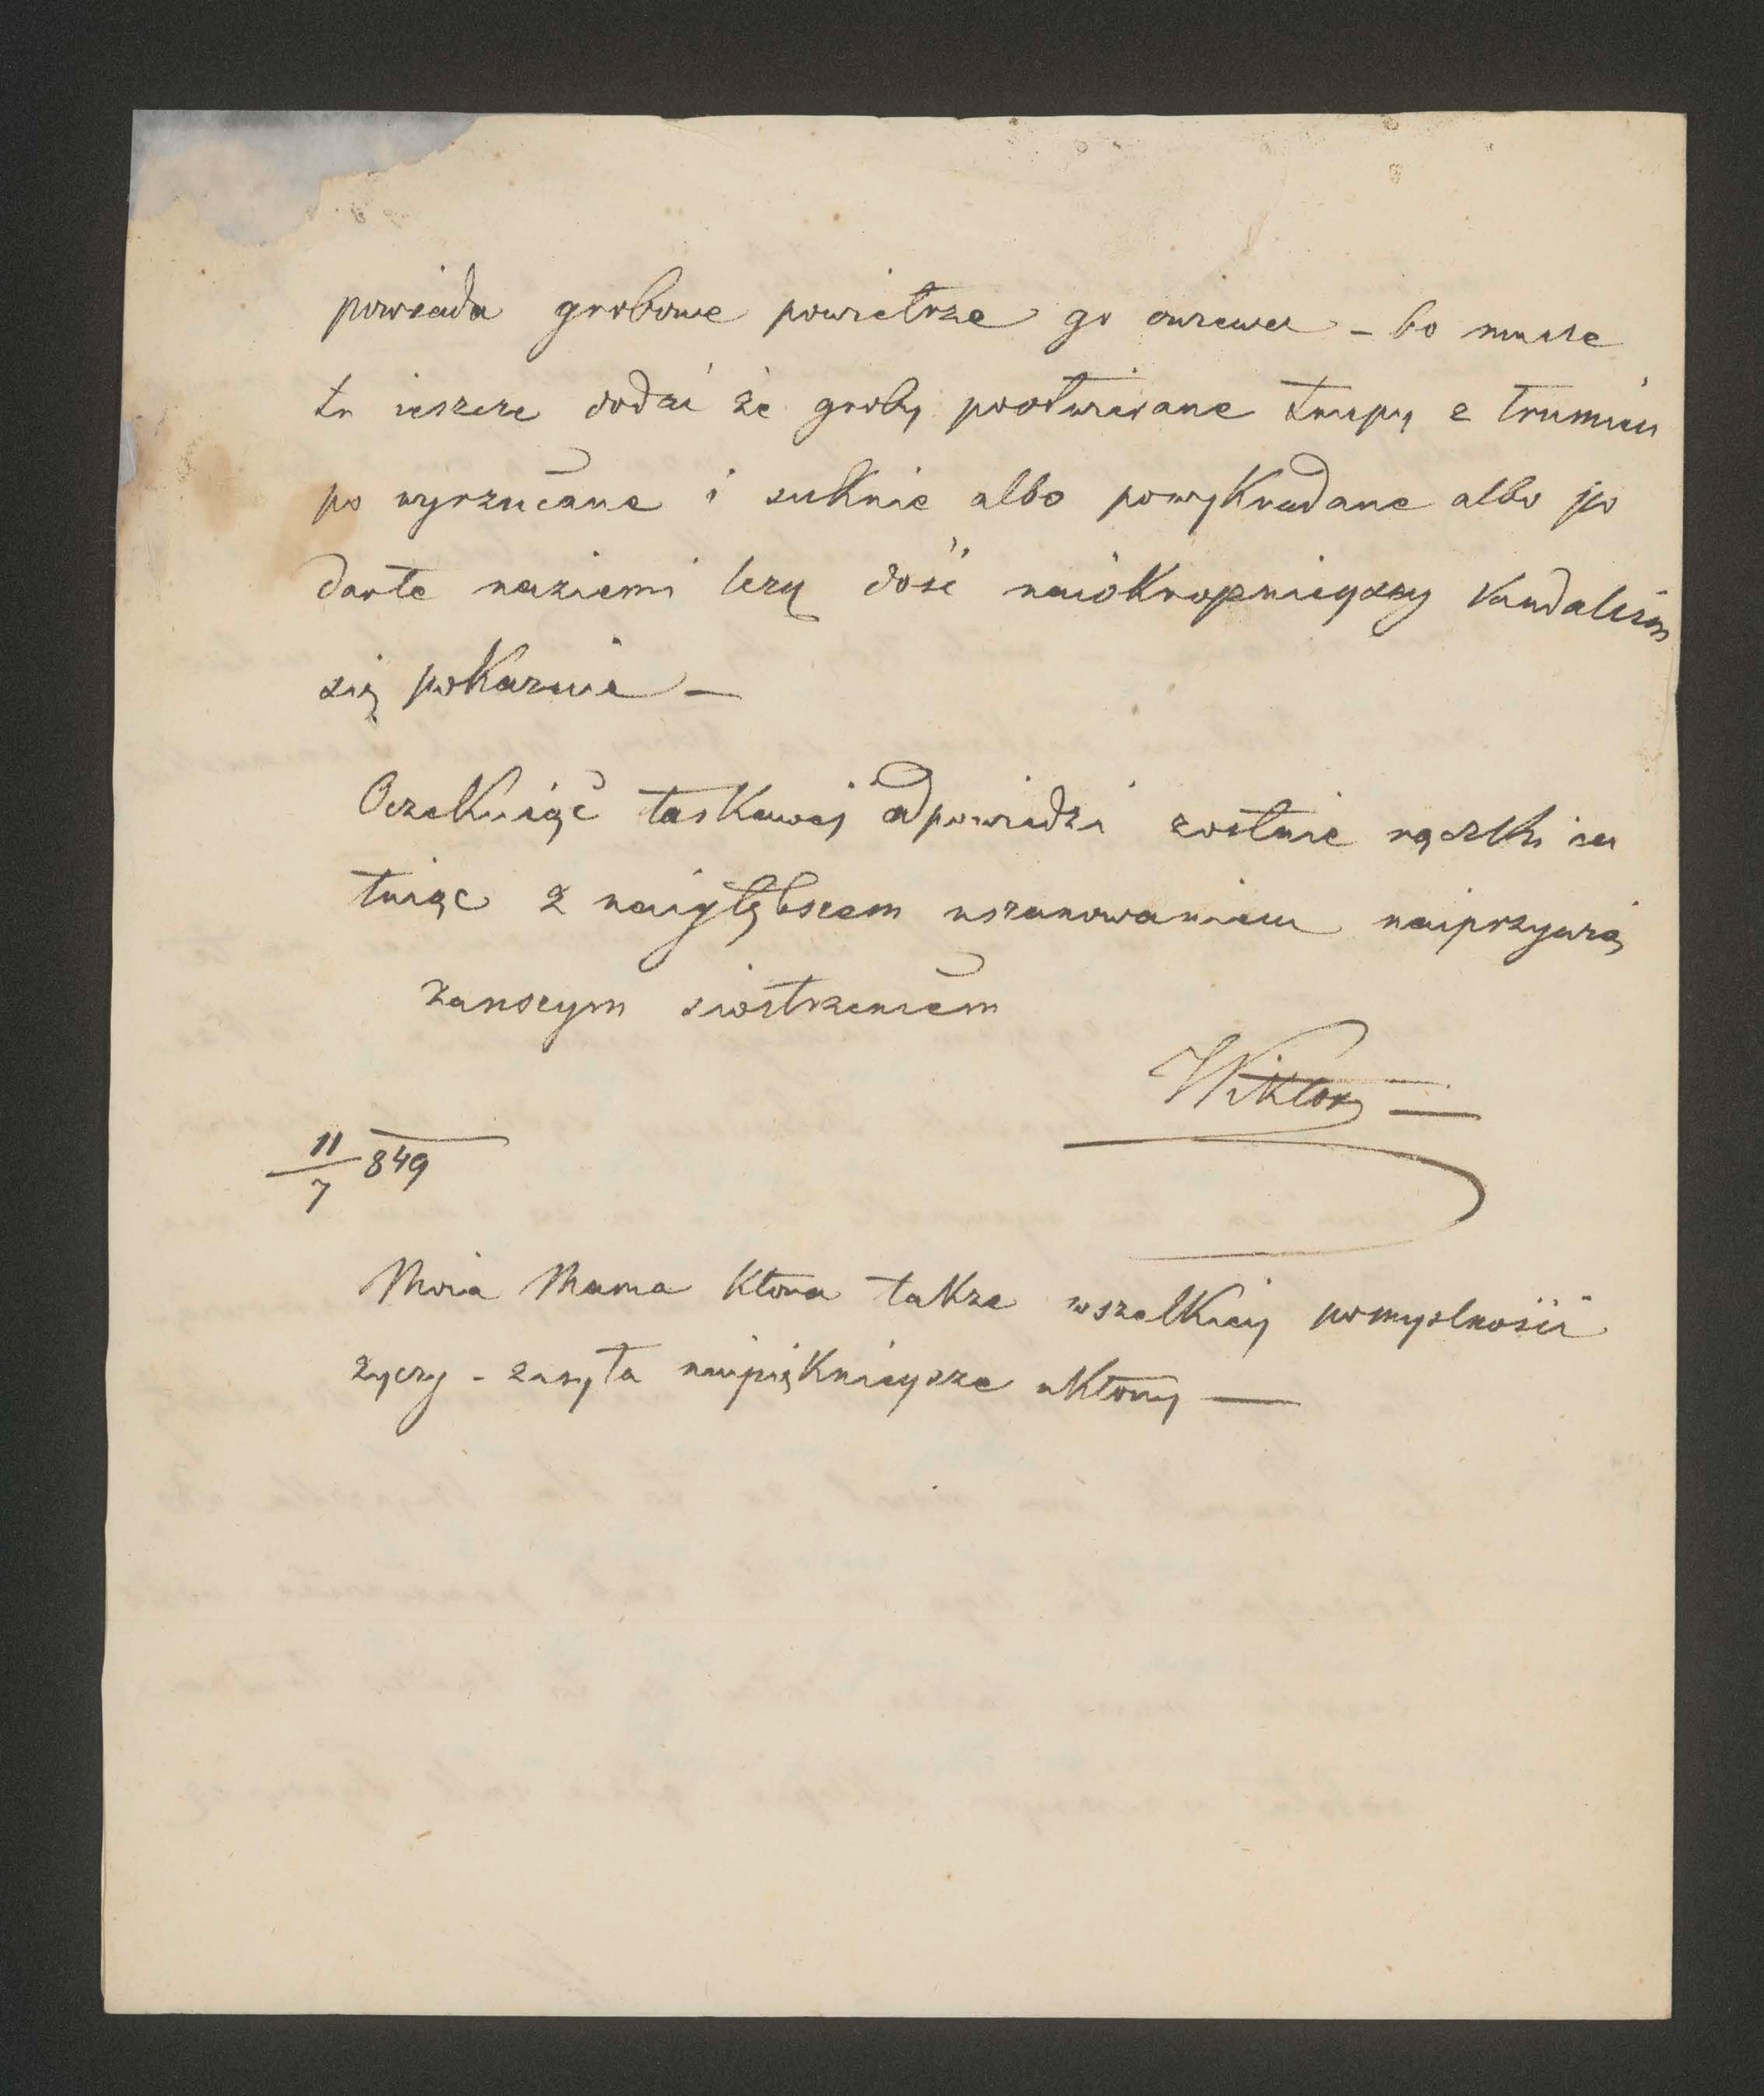 powiada grobowe powietrze go owiewa – bo musze
tu ieszcze dodać że groby pootwierane trupy z trumien
po wyrzucane i suknie albo powykradane albo po
darte naziemi lezą dość naiokropnieyszy Vandalism
się pokazuie –
Oczekuiąc łaskawej odpowiedzi zostaie rączki ca
łuiąc z naigłębszem uszanowaniem naiprzywią
zanszym siostrzencem
Wiktor –
11/7 849
Moia Mama ktora takze wszelkiey pomyslności
życzy – zasyła naipięknieysze ukłony –